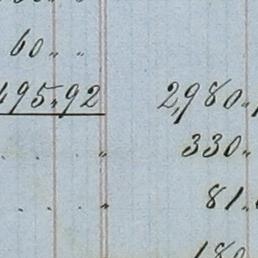 60 " "
495 " 92 2,980 "
" 330 "
" 81 "
180